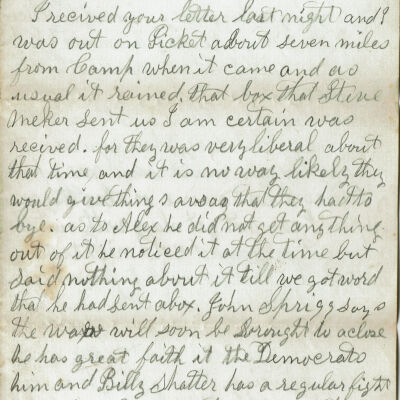 I recived your letter last night and I
was out on Picket about seven miles
from Camp when it came and as
usual it rained, that box that Steve
Meker sent us I am certain was
recived. for they was very liberal about
that time and it is no way likely they
would give things away that they had to
bye. as to Alex he did not get anything
out of it he noticed it at the time but
said nothing about it till we got word
that he had sent a box. John Sprigg says
the war will soon be brought to a close
he has great faith it the Democrats
him and Billy Shatter has a regular fight